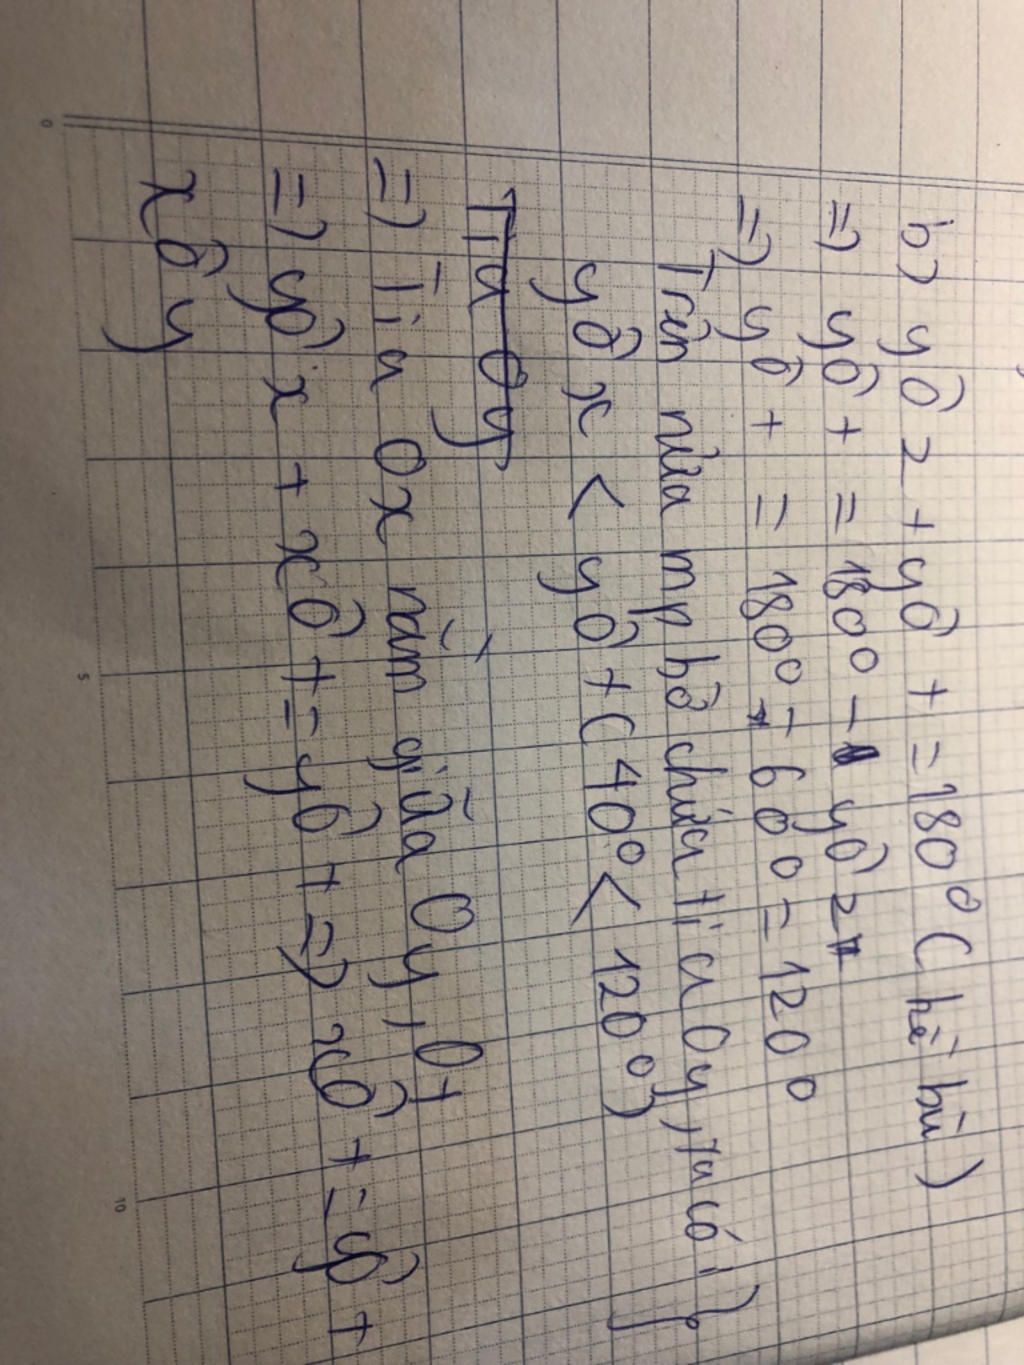 b) yÔz + yÔt = 180° (kề bù)
=> yÔt = 180° - yÔz
=> yÔt = 180° - 60° = 120°
Trên nửa mp bờ chứa tia Oy, ta có: }
yÔx < yÔt (40° < 120°)
Tia Oy
=> Tia Ox nằm giữa Oy, Ot
=> yÔx + xÔt = yÔt => xÔt = yÔt
xÔy
0
5
10